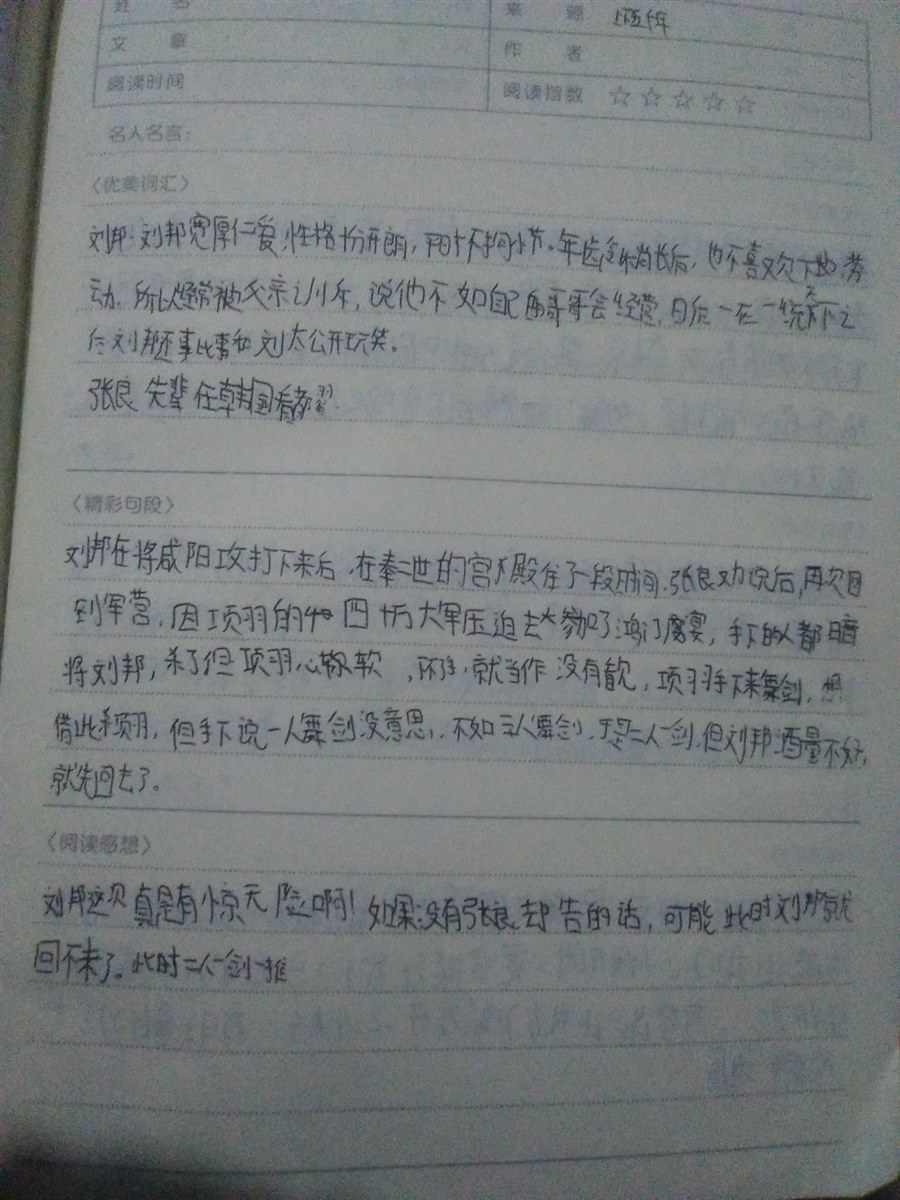 姓 名 来 源
文 章 作 者
阅读时间 阅读指数 ☆☆☆☆☆
名人名言:
〈优美词汇〉
刘邦:刘邦宽厚仁爱,性格十分开朗,平时不拘小节。年龄稍长后,也不喜欢下地劳
动.所以经常被父亲训斥,说他不如自己的哥哥会经营,日后一统天下之
后刘邦还拿此事和刘太公开玩笑。
张良 先辈在韩国
〈精彩句段〉
刘邦在将咸阳攻打下来后,在秦二世的宫殿住了一段时间.张良劝说后,再次回
到军营,因项羽的四十万大军压迫去参加了鸿门宴,手下的人都暗
将刘邦,杀了但项羽心软,就当作没有,项羽手下来舞剑,想
借此杀项羽,但手下说一人舞剑没意思,不如二人舞剑,于是二人一剑,但刘邦酒量不好,
就先回去了。
〈阅读感想〉
刘邦这次真是有惊无险啊!如果没有张良劝告的话,可能此时刘邦就
回不来了。此时二人一剑一推